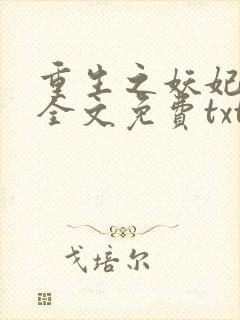 重生之妖妃
全文免费txt
戈培尔